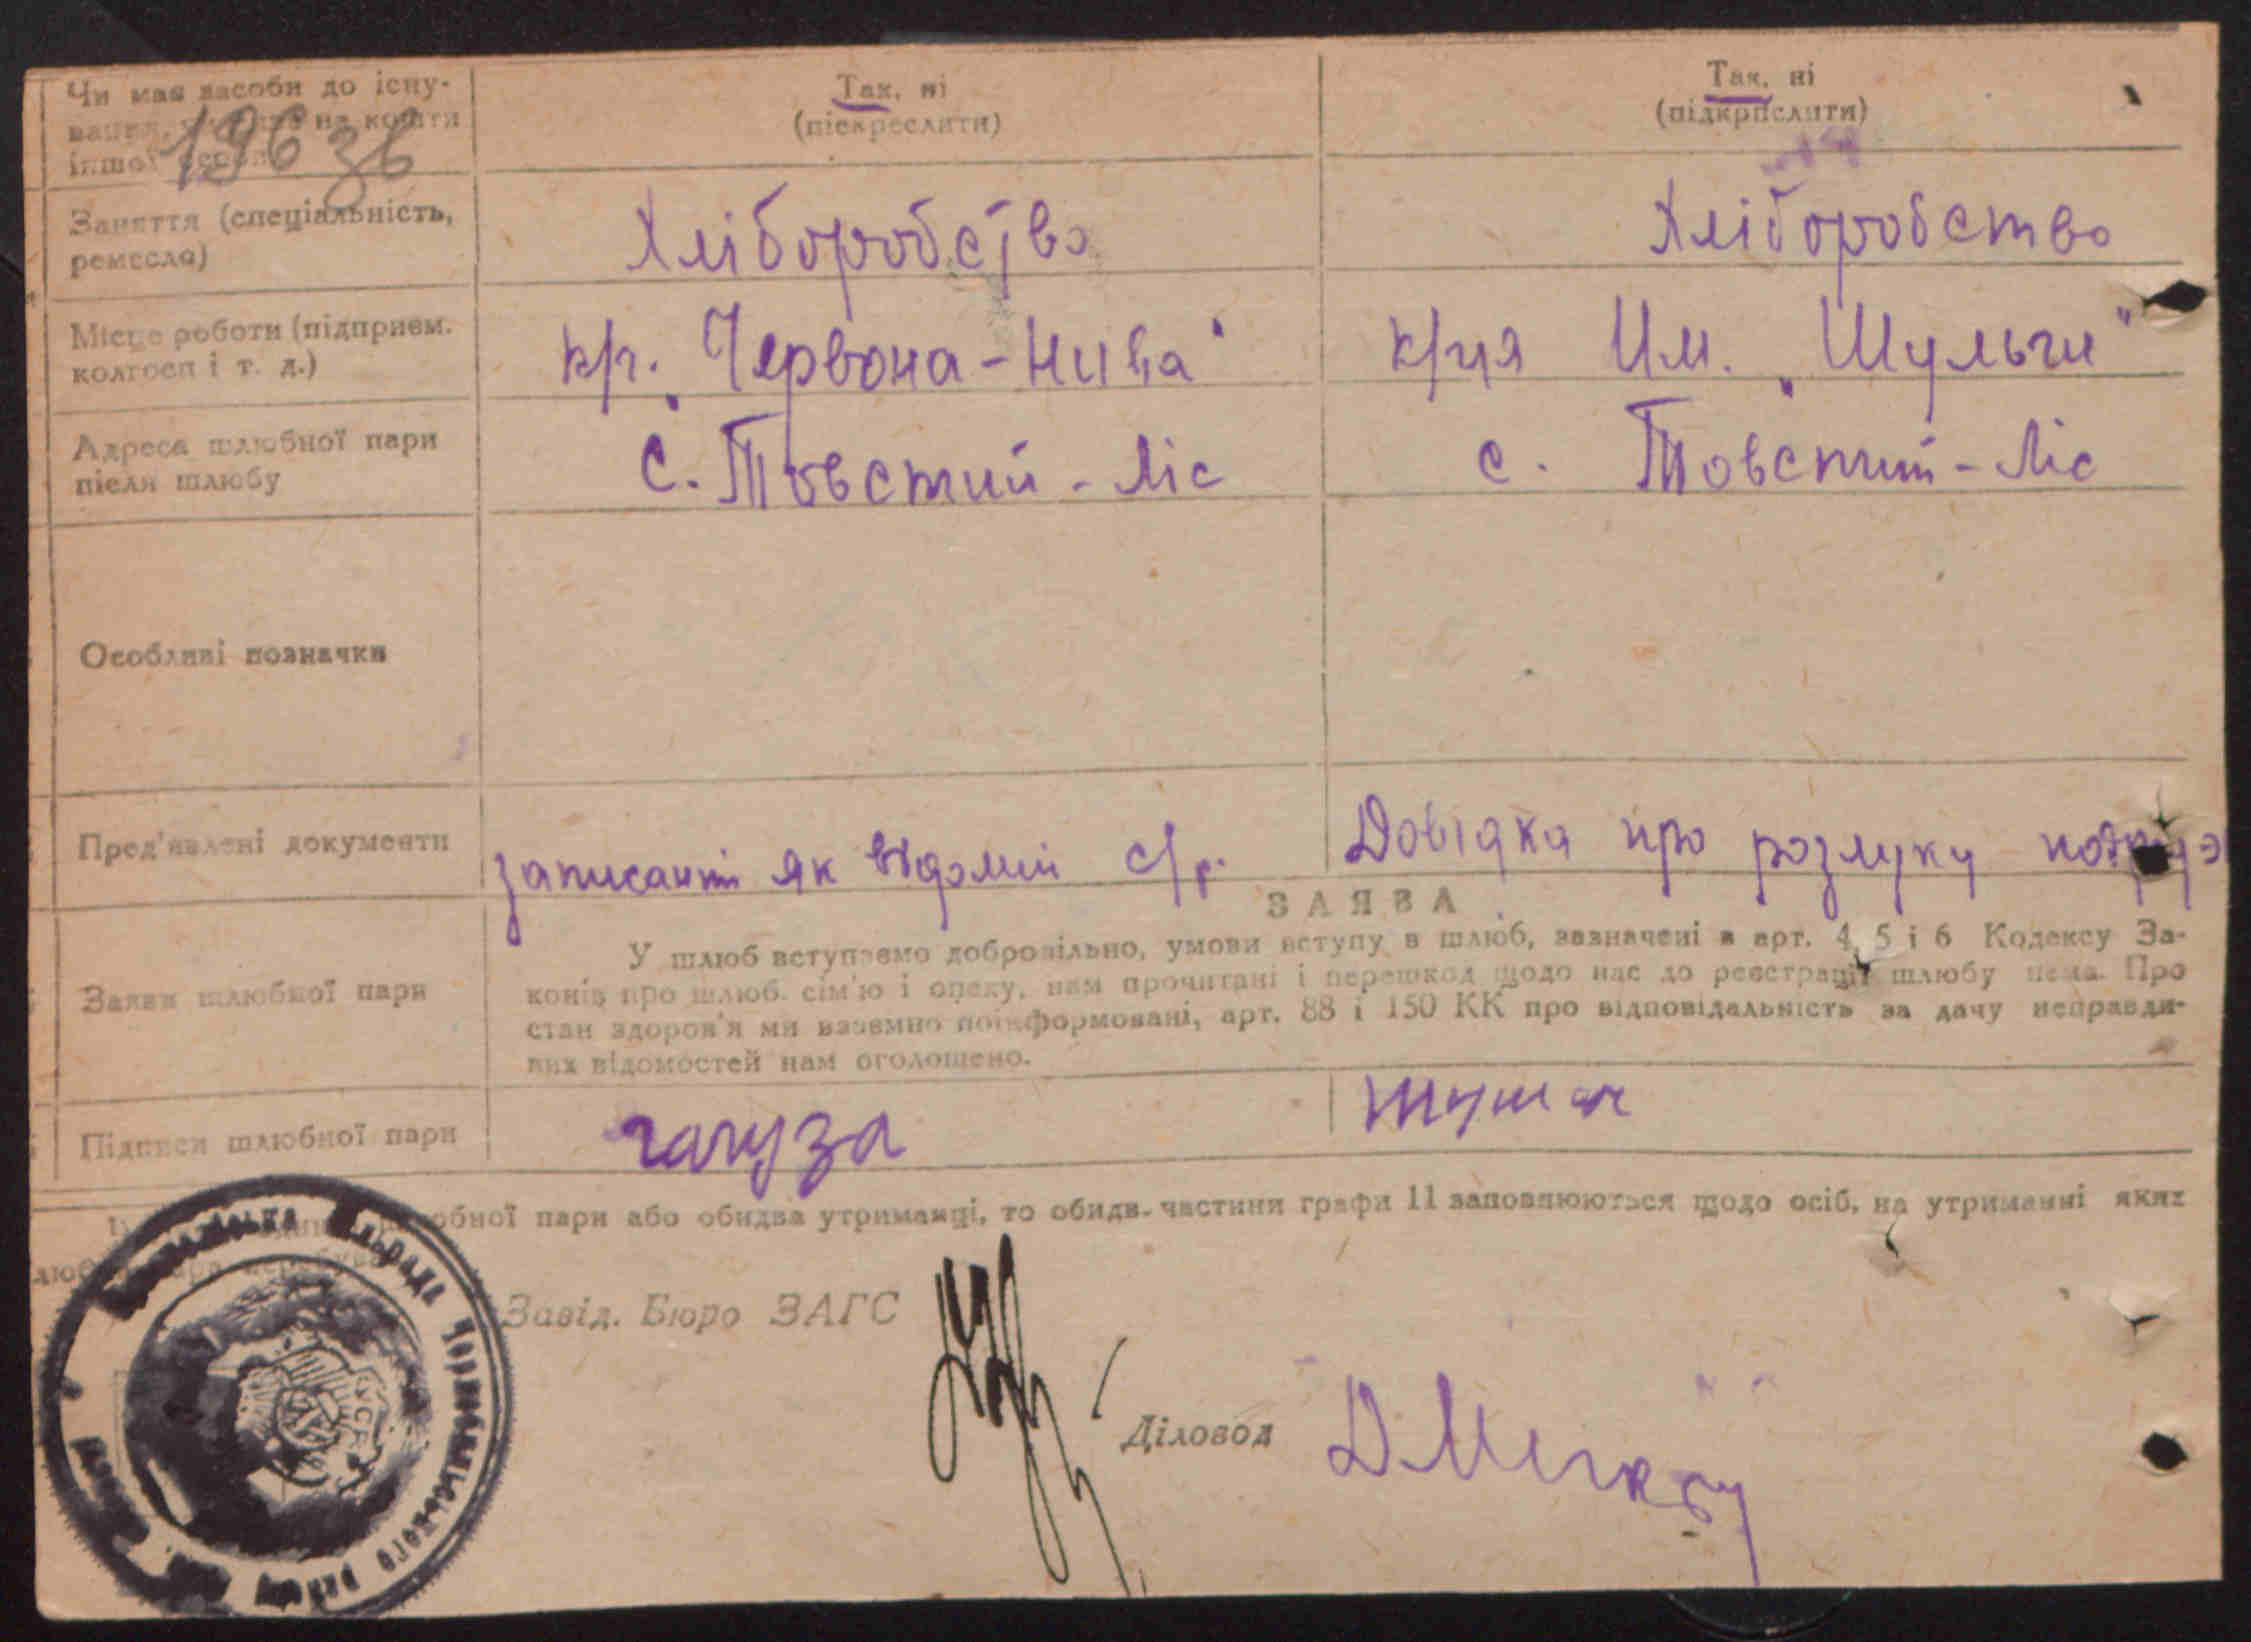 Чи має засоби до існу-
іншої
196 зв
Так, ні
(підкреслити)
Так, ні
(підкрислити)
Заняття (спеціальність,
ремесло)
Хліборобство
Хліборобство
Місце роботи (підприєм.
колгосп і т. д.)
к/г. „Червона-Нива"
Им. „Шульги"
Адреса шлюбної пари
після шлюбу
с. Товстий-Ліс
с. Товстий-Ліс
Особливі позначки
Пред'явлені документи
як відомий с/р.
Довідка про розлуку
ЗАЯВА
Заяви шлюбної пари
У шлюб вступаємо добровільно, умови вступу в шлюб, зазначені в арт. 4, 5 і 6 Кодексу За-
конів про шлюб. сім'ю і опеку, нам прочитані і перешкод щодо нас до реєстрації шлюбу нема. Про
стан здоров'я ми взаємно поінформовані, арт. 88 і 150 КК про відповідальність за дачу неправди-
вих відомостей нам оголошено.
Підписи шлюбної пари
гагуза
обної пари або обидва утриманці, то обидв. частини графи 11 заповнюються щодо осіб, на утриманні яких
Завід. Бюро ЗАГС
Діловод
сільрада Чорнобильського району